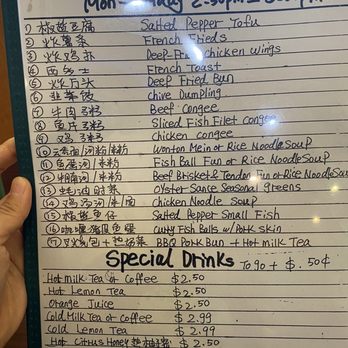 ① 椒鹽豆腐 Salted Pepper Tofu
② 炸薯条 French Frieds
③ 炸鸡 Deep Fried Chicken Wings
④ 西多士 French Toast
⑤ Deep Fried Bun
⑥ 韭菜 Chive Dumpling
⑦ 牛肉粥 Beef Congee
⑧ 魚片粥 Sliced Fish Filet Congee
⑨ 鸡粥 Chicken congee
⑩ /河粉/米粉 Wonton Mein or Rice Noodle Soup
⑪ 魚蛋河/米粉 Fish Ball Fun or Rice Noodle Soup
⑫ 牛腩河/米粉 Beef Brisket & Tendon Fun or Rice Noodle Soup
⑬ 蚝油时菜 Oyster Sauce Seasonal greens
⑭ 鸡汤河/米 Chicken Noodle Soup
⑮ 椒鹽魚仔 Salted Pepper Small Fish
⑯ 咖喱 魚蛋 Curry Fish Balls w/ Pork Skin
⑰ 叉燒包+热奶茶 BBQ Pork Bun + Hot milk Tea
Special Drinks To go + $.50¢
Hot Milk Tea or Coffee $2.50
Hot Lemon Tea $2.50
Orange Juice $2.50
Cold Milk Tea or Coffee $2.99
Cold Lemon Tea $2.99
Hot Citrus Honey $2.50